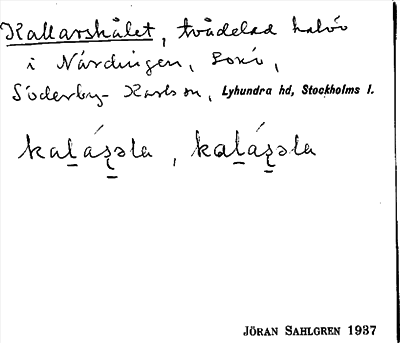 Kallarshålet, tvådelad halvö
i Närdingen, sonö,
Söderby-Karls sn, Lyhundra hd, Stockholms l.
kaḻáʂ̱əla, kaḻáʂ̱əla
JÖRAN SAHLGREN 1937